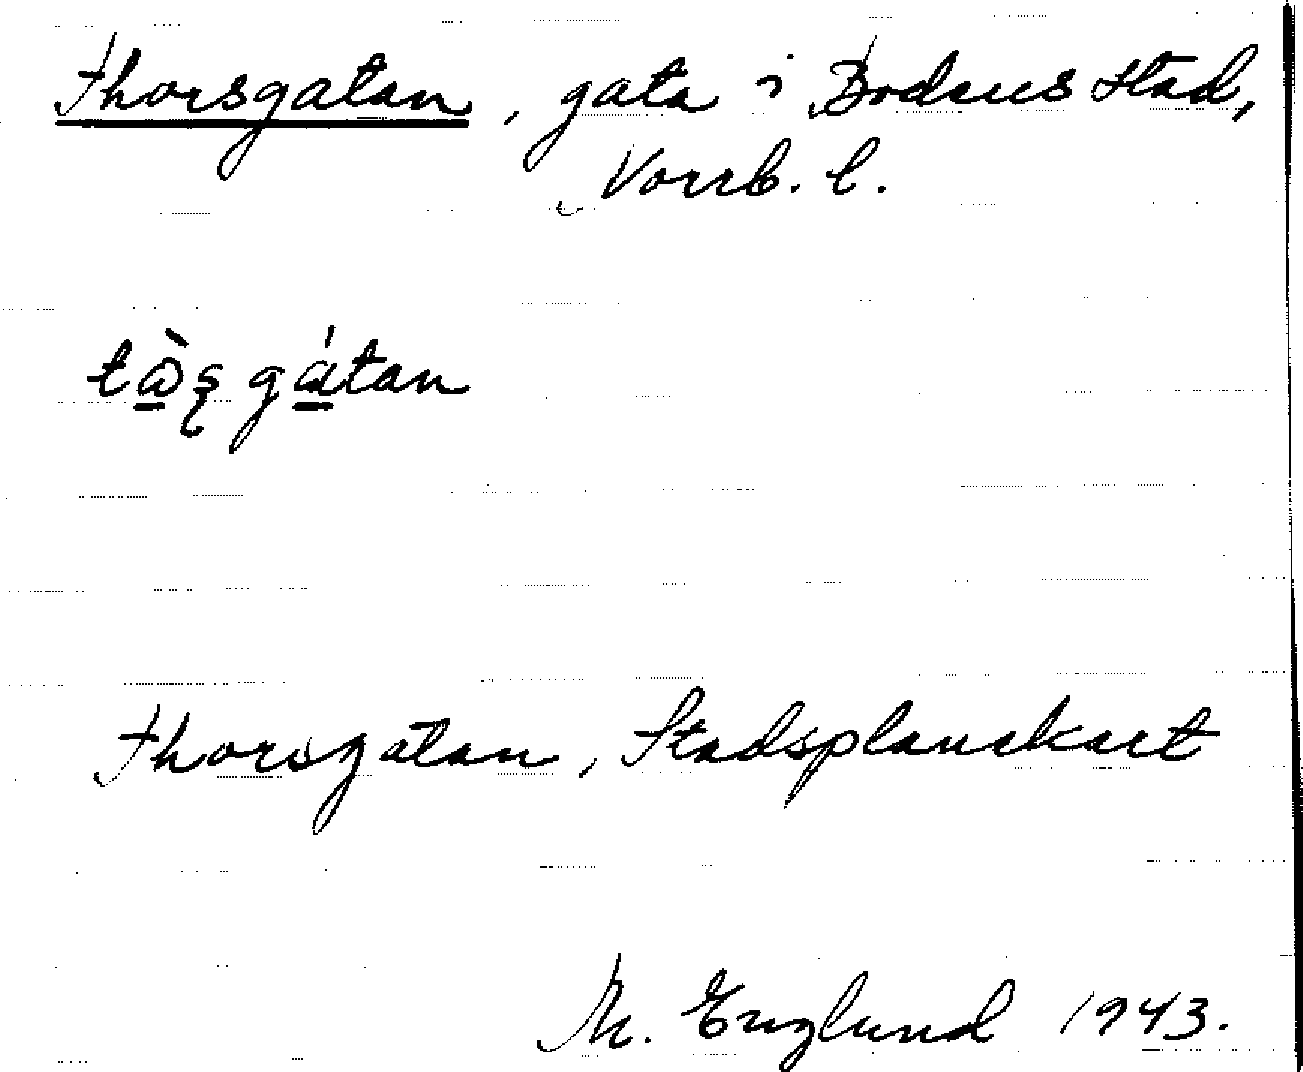 Thorsgatan, gata i Bodens stad,
Norrb. l.
tə̀ʂ gátan
Thorsgatan, Stadsplanekart
M. Englund 1943.